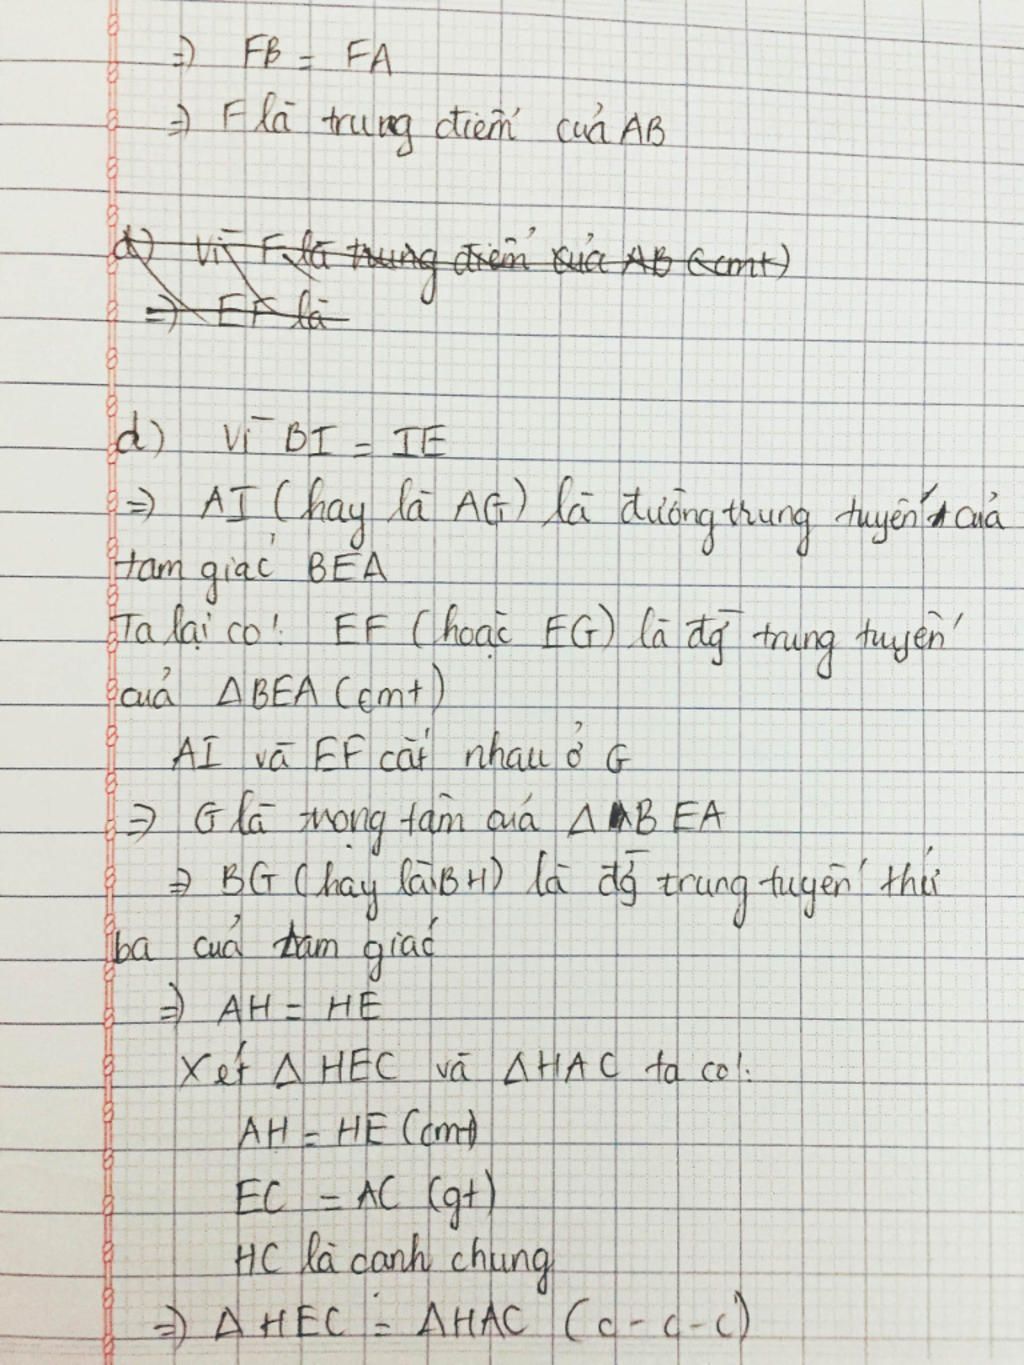 =) FB = FA
=) F là trung điểm của AB
d) Vì F là trung điểm của AB (cmt)
=) EF là
d) Vì BI = IE
=) AI (hay là AG) là đường trung tuyến của
tam giác BEA
Ta lại có: EF (hoặc EG) là đg trung tuyến
của Δ BEA (cmt)
AI và EF cắt nhau ở G
=) G là trọng tâm của Δ BEA
=) BG (hay là BH) là đg trung tuyến thứ
ba của tam giác
=) AH = HE
Xét Δ HEC và Δ HAC ta có:
AH = HE (cmt)
EC = AC (gt)
HC là cạnh chung
=) Δ HEC = Δ HAC (c - c - c)